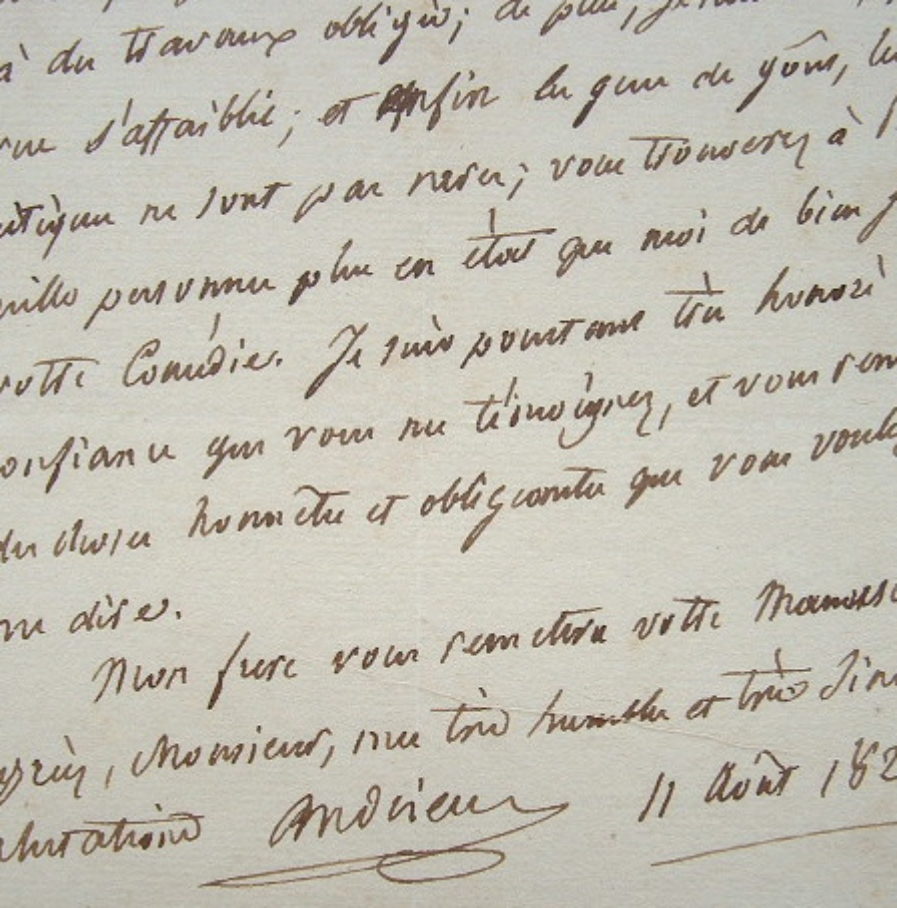 à des travaux obligés; de plus, je
vue s'affaiblit; et enfin les gens de goût, les
critiques ne sont pas rares; vous trouverez à
mille personnes plus en état que moi de bien
votre Comédie. Je suis pourtant très honoré
confiance que vous me témoignez, et vous
des choses honnêtes et obligeantes que vous voulez
me dire.
Mon frère vous remettra votre Manus
agréez, Monsieur, mes très humbles et très Sinc
salutations Andrieux 11 Août 182